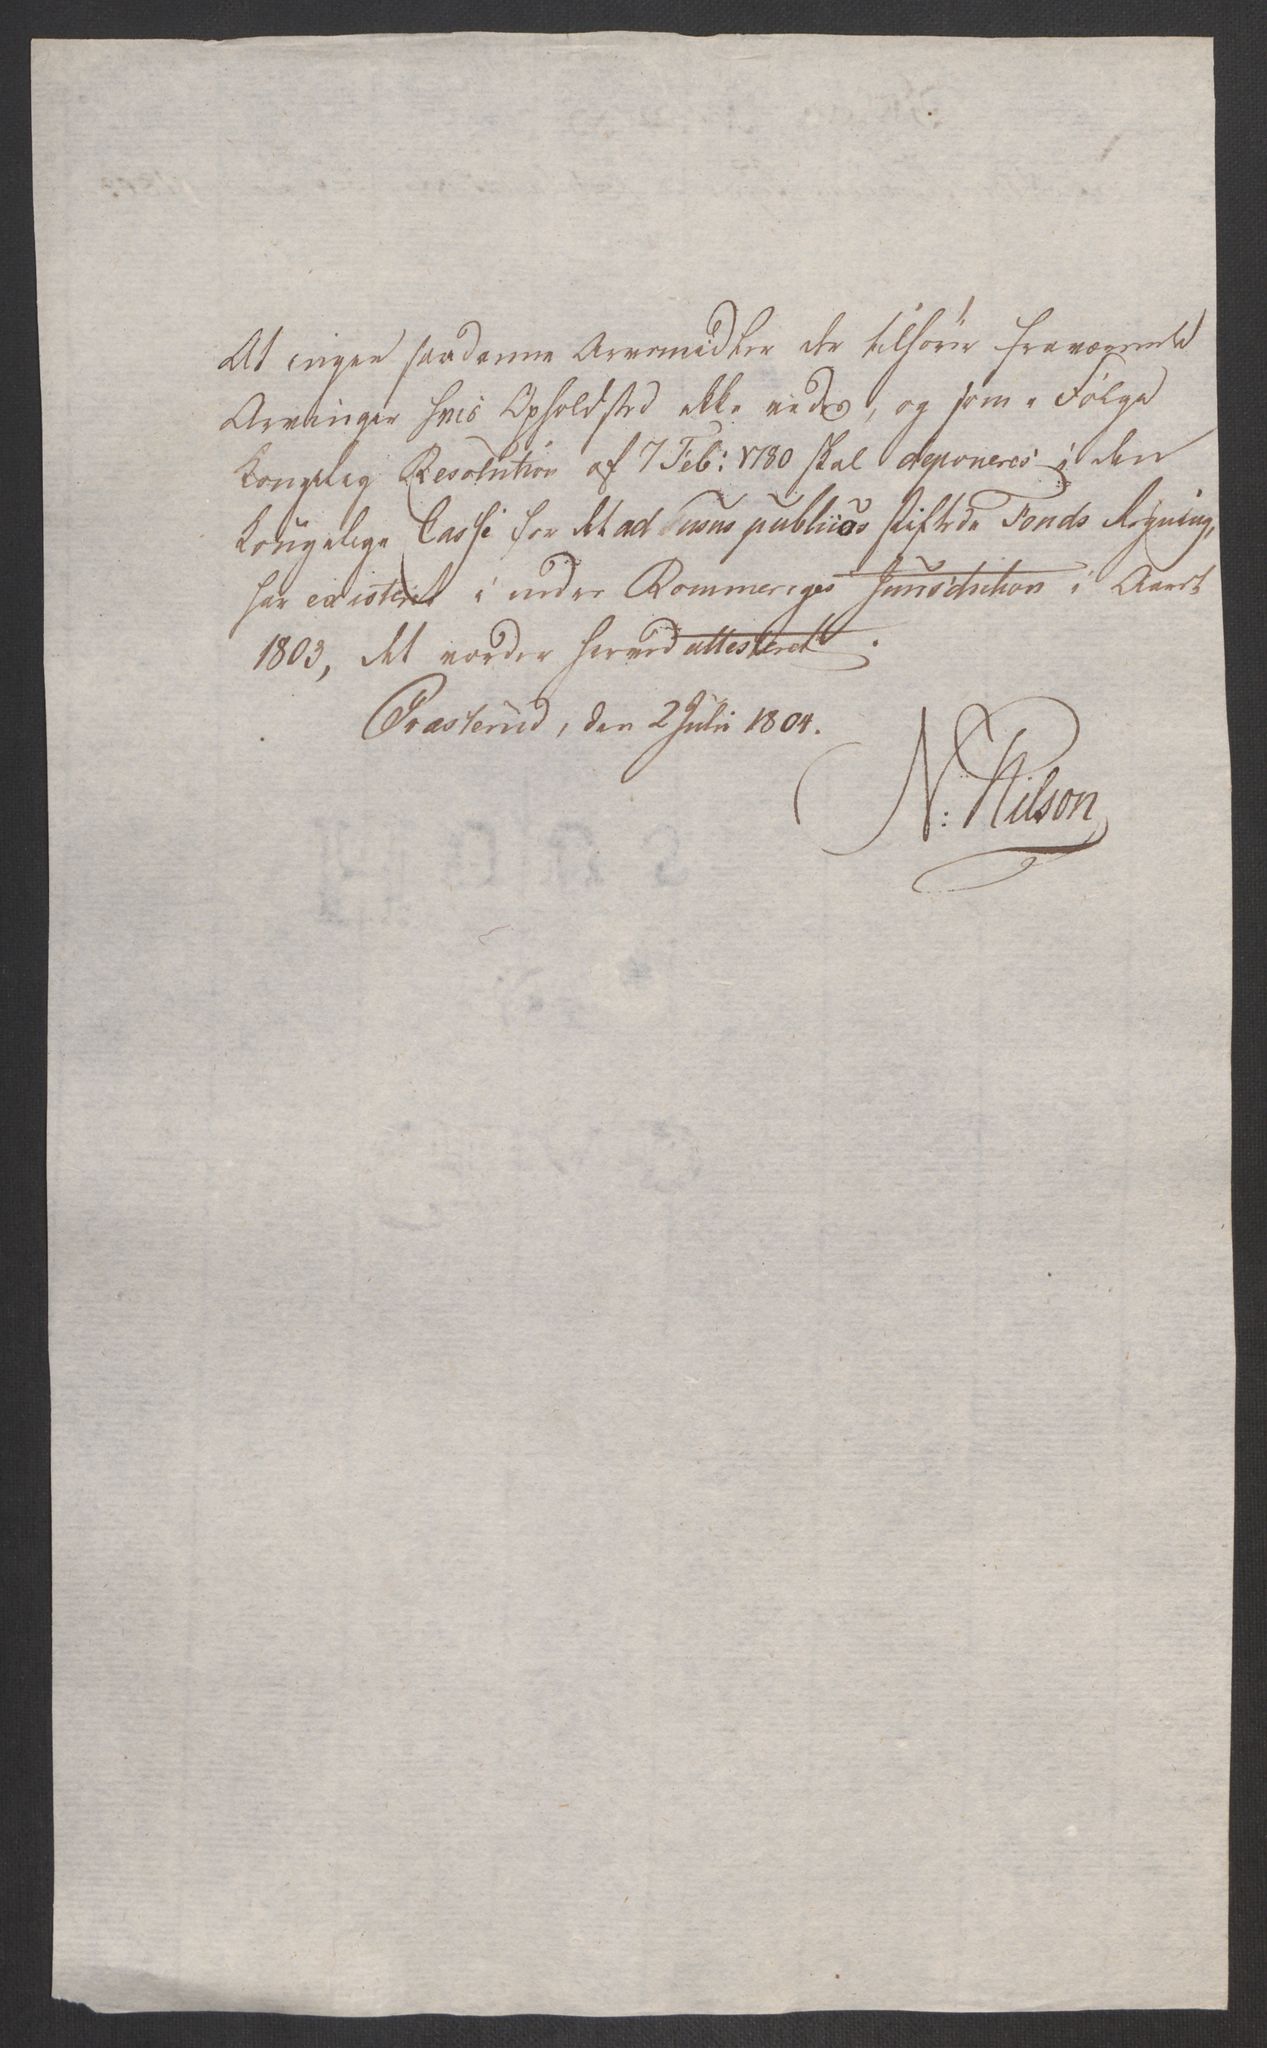 At ingen saadanne Arvemidler der tilhører fraværende
Arvinger hvis Opholdsted ikke vides, og som i Følge
kongelig Resolution af 7 Feb: 1780 skal deponeres i den
kongelige Casse for det ad usus publicos stiftede Fonds Regning,
har existeret i nedre Rommeriges Jurisdiction i Aaret
1803, det vorder herved attesteret.
Præsterud, den 2 Julii 1804.
N: Nilson